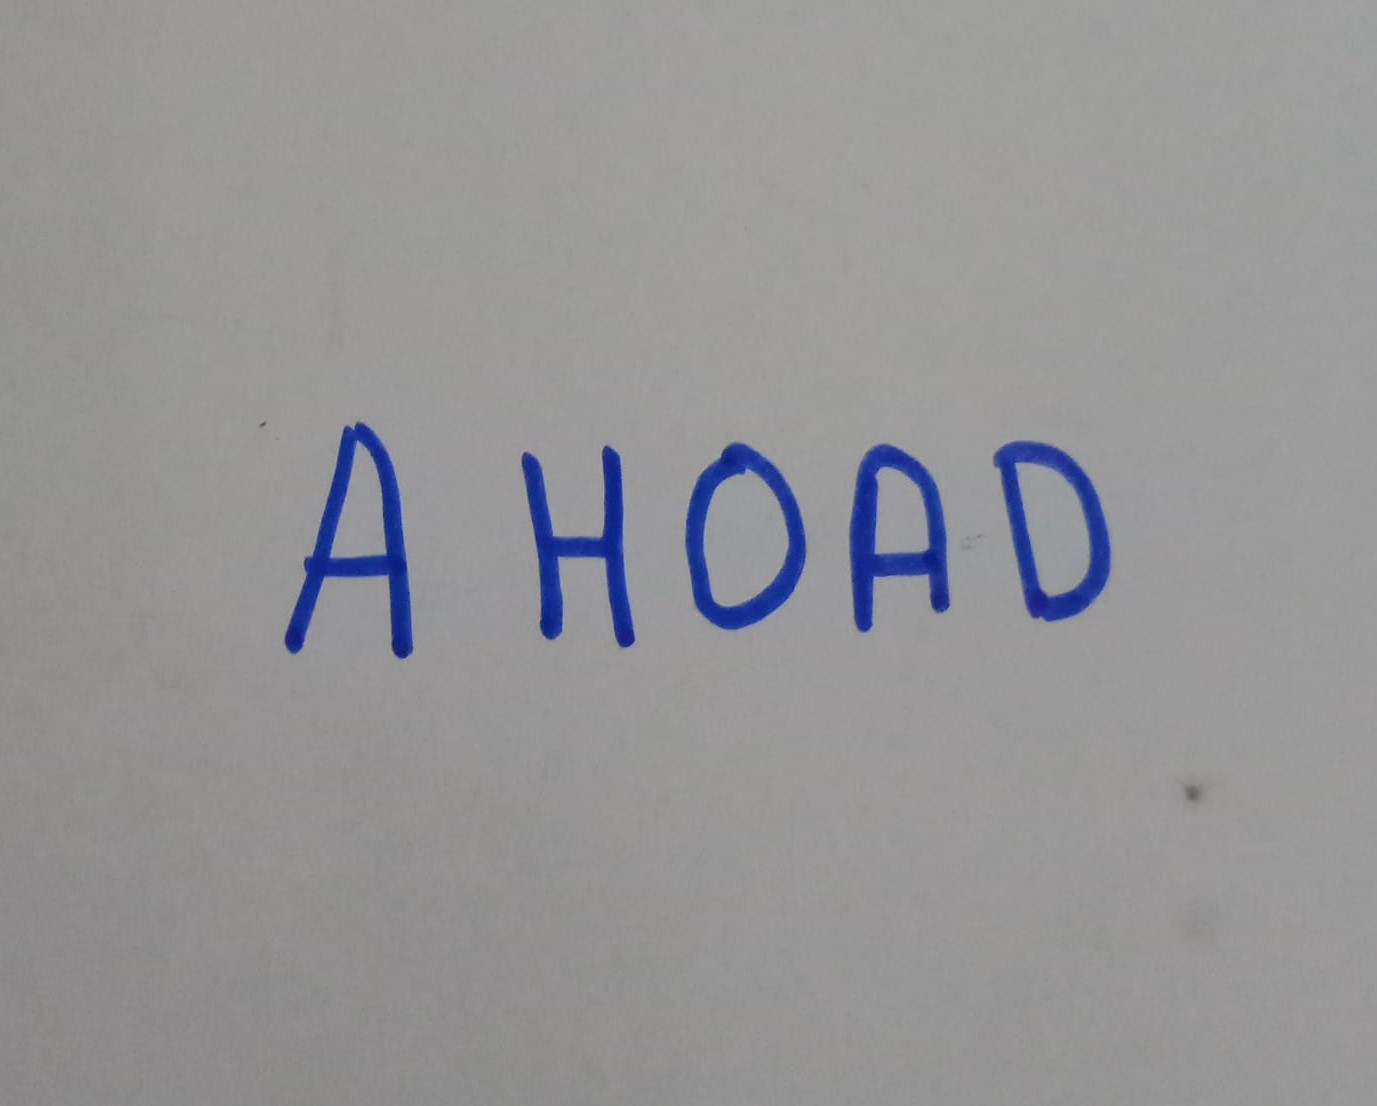 A HOAD